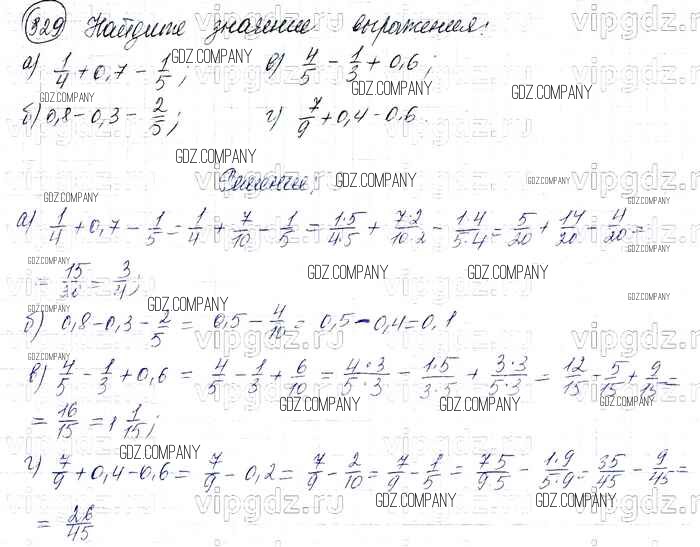 829 Найдите значение выражения:
а) 1/4 + 0,7 - 1/5; в) 4/5 - 1/3 + 0,6;
б) 0,8 - 0,3 - 2/5; г) 7/9 + 0,4 - 0,6.
Решение:
а) 1/4 + 0,7 - 1/5 = 1/4 + 7/10 - 1/5 = 1·5/4·5 + 7·2/10·2 - 1·4/5·4 = 5/20 + 14/20 - 4/20 =
= 15/20 = 3/4;
б) 0,8 - 0,3 - 2/5 = 0,5 - 4/10 = 0,5 - 0,4 = 0,1
в) 4/5 - 1/3 + 0,6 = 4/5 - 1/3 + 6/10 = 4·3/5·3 - 1·5/3·5 + 3·3/5·3 = 12/15 - 5/15 + 9/15 =
= 16/15 = 1 1/15;
г) 7/9 + 0,4 - 0,6 = 7/9 - 0,2 = 7/9 - 2/10 = 7/9 - 1/5 = 7·5/9·5 - 1·9/5·9 = 35/45 - 9/45 =
= 26/45